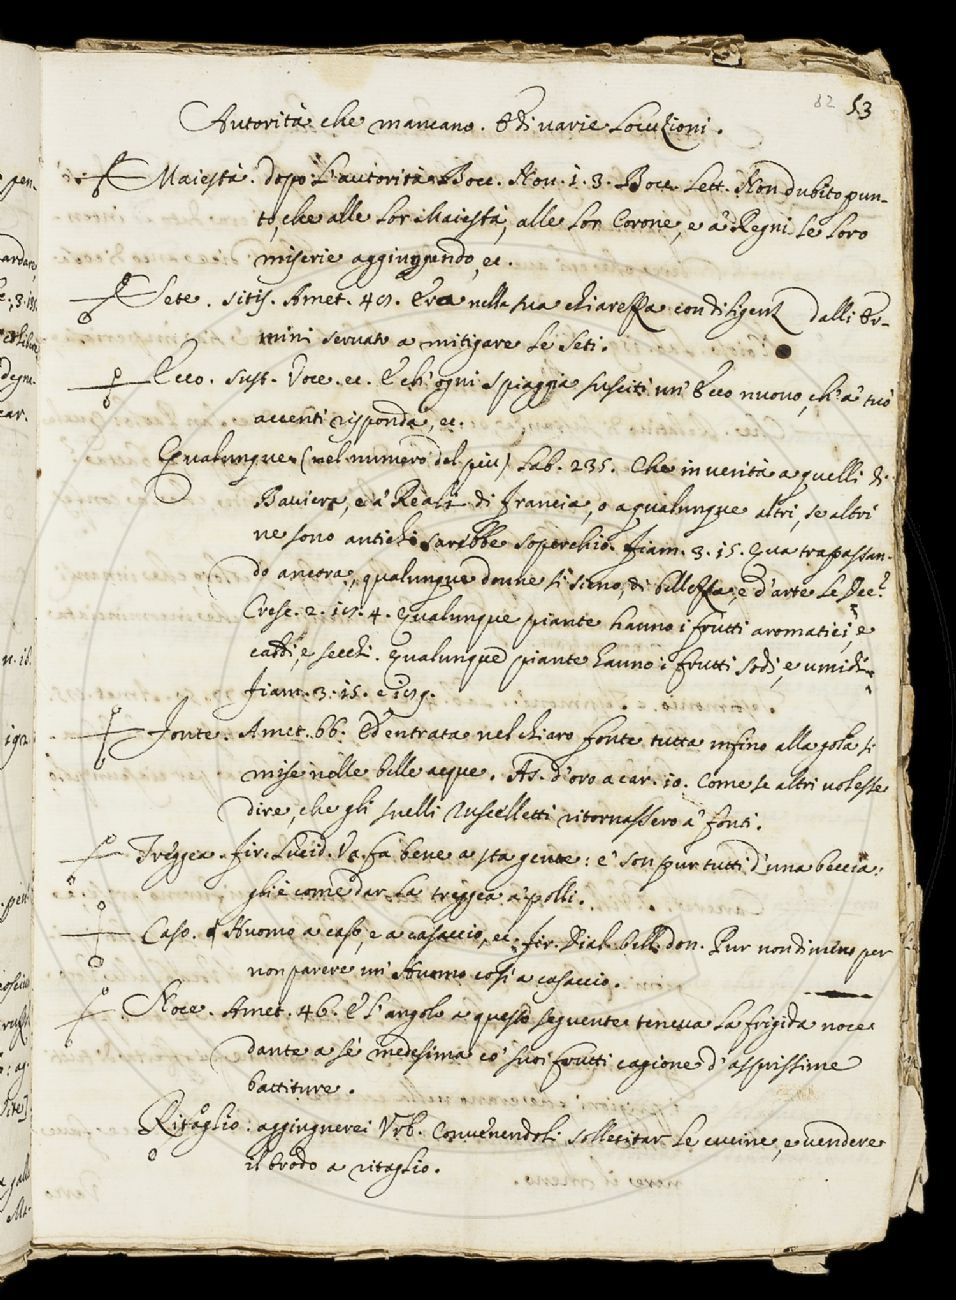 82 53
Autorità che mancano. E di varie Locuzioni.
Maiestà. dopo l'autorità Bocc. Nov. 1. 3. Bocc. Lett. Non dubito pun-
to, che alle lor Maiestà, alle lor Corone, e a' Regni le loro
miserie aggiungendo, ec.
Sete. sitis. Amet. 49. Era nella sua chiarezza con diligenz dalli ter-
mini servato a mitigare le seti.
Ecco. sust. Voce. ec. E ch'ogni spiaggia susciti un' Ecco nuovo, ch'a' tuo'
accenti risponda, ec.
Qualunque (nel numero del più) Lab. 235. Che in verità a quelli di
Baviera, e a' Reali di Francia, o a qualunque altri, se altri
ne sono antichi sarebbe soperchio. Fiam. 3. 15. Qua trapassan-
do ancora, qualunque donne si sieno, di bellezza, e d'arte le Dee?
Cresc. 2. 19. 4. Qualunque piante hanno i frutti aromatici, e
caldi, e secchi. Qualunque piante hanno i frutti sodi, e umidi
Fiam. 3. 15. e 119.
Fonte. Amet. 66. Ed entrata nel chiaro fonte tutta infino alla gola si
mise nelle belle acque. As. d'oro a car. 10. Come se altri volesse
dire, che gli snelli ruscelletti ritornassero a' fonti.
Treggea. Fir. Lucid. Va fa bene a sta gente: e' son pur tutti d'una beccia:
gli è come dar la treggea a' polli.
Caso. Huomo a caso, e a casaccio, ec. Fir. Dial. bell. don. Pur nondimeno per
non parere un' Huomo così a casaccio.
Noce. Amet. 46. E l'angolo a questo seguente teneva la frigida noce
dante a sé medesima co' suoi frutti cagione d'asprissime
battiture.
Ritaglio. aggiugnerei Urb. Convenendoli sollecitar le cucine, e vendere
il brodo a ritaglio.